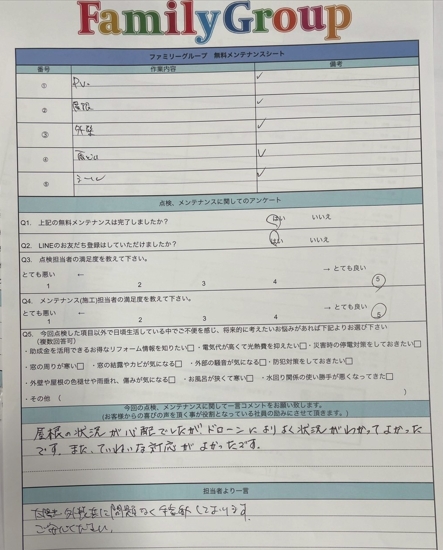 FamilyGroup
ファミリーグループ 無料メンテナンスシート
番号 作業内容 備考
① P.V. ✓
② 屋根 ✓
③ 外壁 ✓
④ 雨どい ✓
⑤ シール ✓
点検、メンテナンスに関してのアンケート
Q1. 上記の無料メンテナンスは完了しましたか? はい いいえ
Q2. LINEのお友だち登録はしていただけましたか? はい いいえ
Q3. 点検担当者の満足度を教えて下さい。
とても悪い ← → とても良い
1 2 3 4 5
Q4. メンテナンス(施工)担当者の満足度を教えて下さい。
とても悪い ← → とても良い
1 2 3 4 5
Q5. 今回点検した項目以外で日頃生活している中でご不便を感じ、将来的に考えたいお悩みがあれば下記よりお選び下さい
(複数回答可)
・助成金を活用できるお得なリフォーム情報を知りたい□ ・電気代が高くて光熱費を抑えたい□ ・災害時の停電対策をしておきたい□
・窓の周りが寒い□ ・窓の結露やカビが気になる□ ・外部の騒音が気になる□ ・防犯対策をしておきたい□
・外壁や屋根の色褪せや雨垂れ、傷みが気になる□ ・お風呂が狭くて寒い□ ・水回り関係の使い勝手が悪くなってきた□
・その他 ( )
今回の点検、メンテナンスに関して一言コメントをお願い致します。
(お客様からの喜びの声を頂く事が役割となっている社員の励みにさせて頂きます。)
屋根の状況が心配でしたがドローンによりよく状況がわかってよかった
です。また、ていねいな対応がよかったです。
担当者より一言
問題なく
ご安心ください。